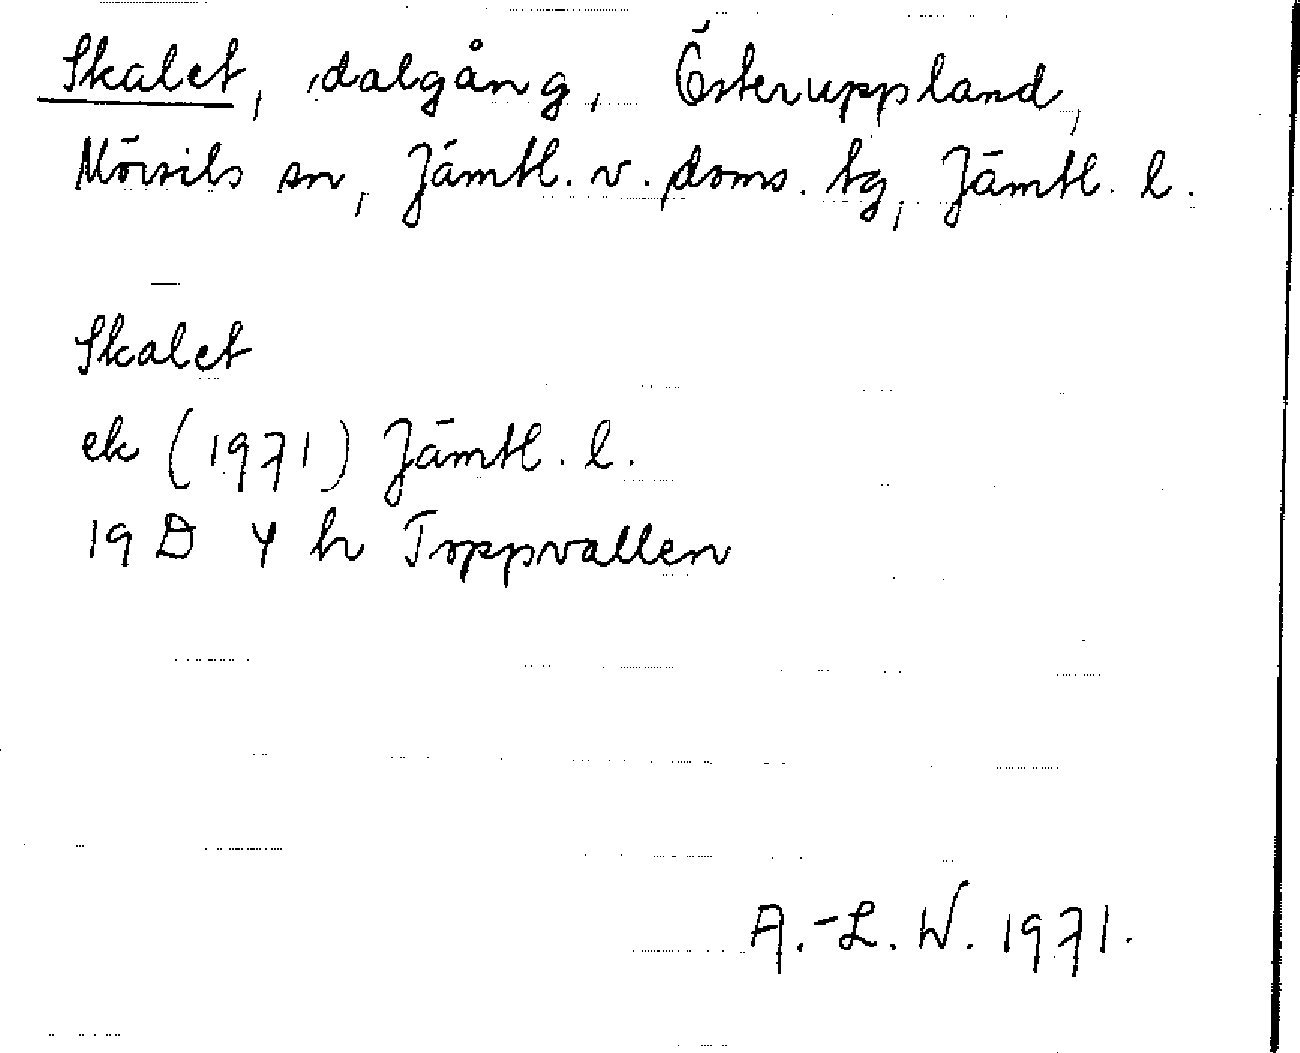 Skalet, dalgång, Österuppland,
Mörsils sn, Jämtl. v. doms. tg, Jämtl. l.
—
Skalet
ek (1971) Jämtl. l.
19 D 4 h Toppvallen
A.-L. W. 1971.